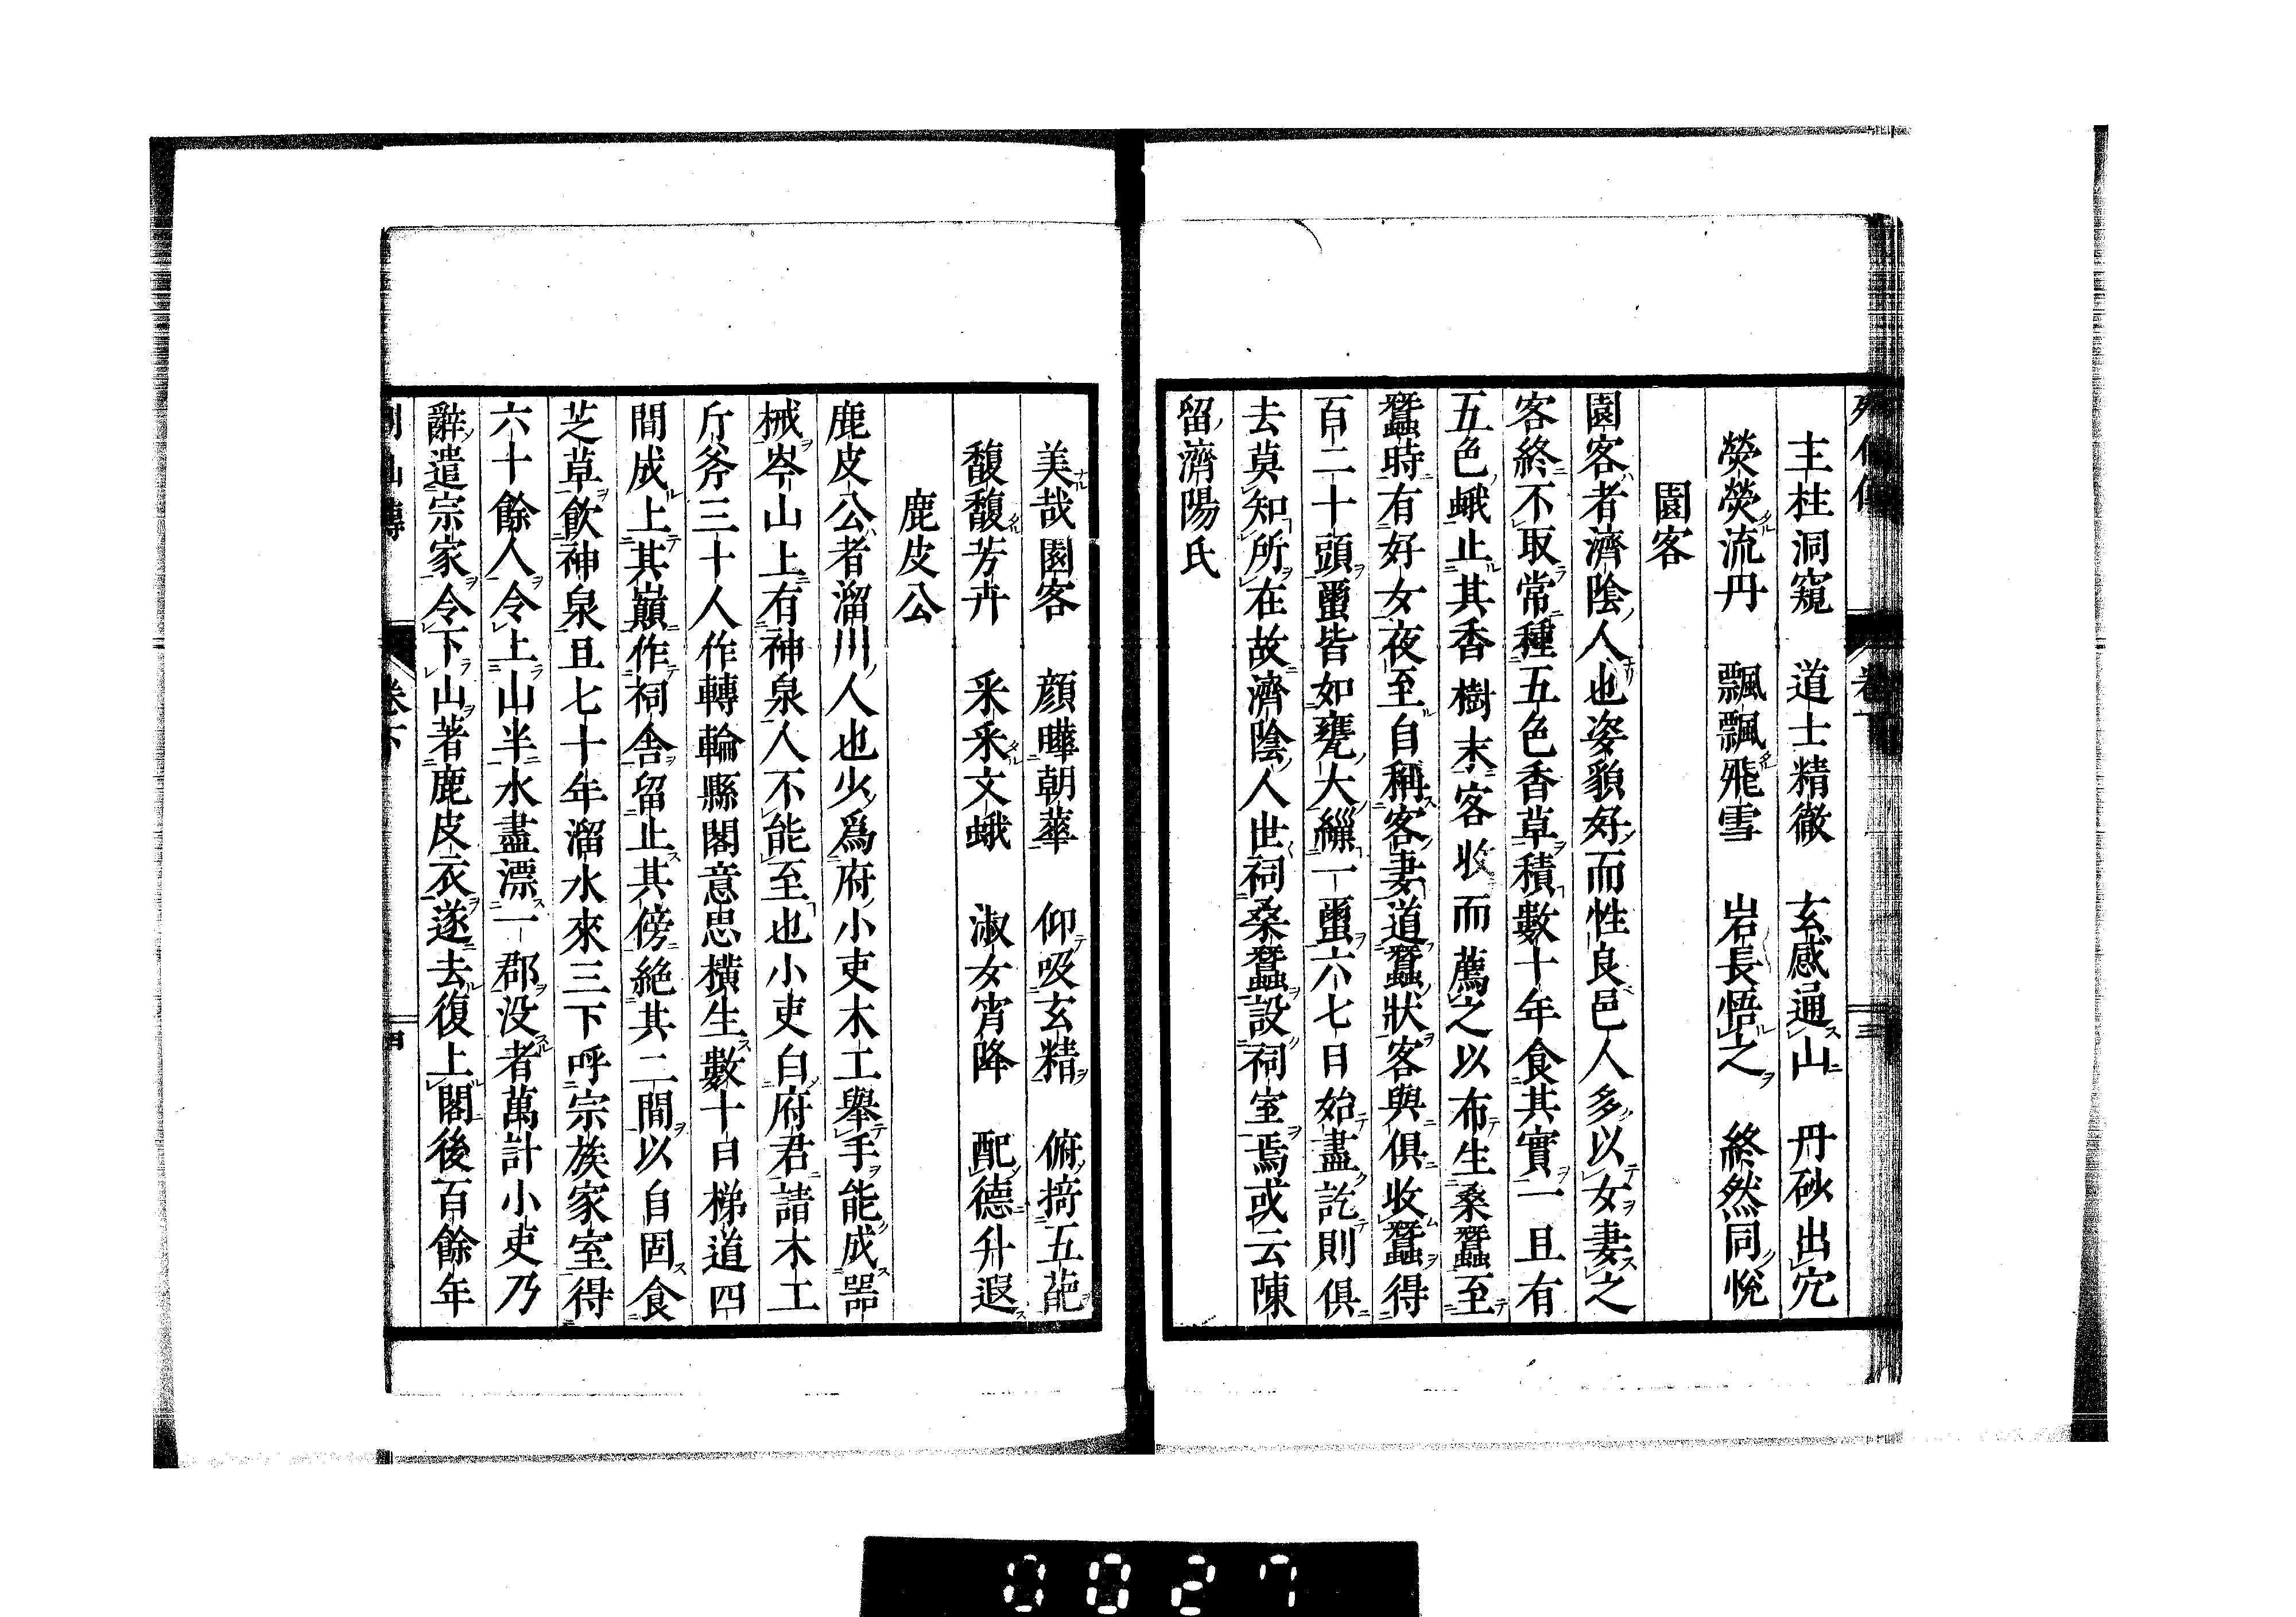 主柱洞窺　道士精徹　玄感通山　丹砂出穴
熒熒流丹　飄飄飛雪　岩長悟之　終然同悅
園客
園客者濟陰人也姿貌好而性良邑人多以女妻之
客終不取常種五色香草積數十年食其實一旦有
五色蛾止其香樹末客收而薦之以布生桑蠶至
蠶時有好女夜至自稱客妻道蠶狀客與俱收蠶得
百二十頭蠒皆如甕大繅一蠒六七日始盡訖則俱
去莫知所在故濟陰人世祠桑蠶設祠室焉或云陳
留濟陽氏
美哉園客　顔曄朝蕐　仰吸玄精　俯捋五葩
馥馥芳卉　釆釆文蛾　淑女宵降　配德升遐
鹿皮公
鹿皮公者淄川人也少爲府小吏木工舉手能成器
械岑山上有神泉人不能至也小吏白府君請木工
斤斧三十人作轉輪縣閣意思橫生數十日梯道四
間成上其巔作祠舍留止其傍絶其二間以自固食
芝草飲神泉且七十年淄水來三下呼宗族家室得
六十餘人令上山半水盡漂一郡没者萬計小吏乃
辭遣宗家令下山著鹿皮衣遂去復上閣後百餘年
卷下
0027